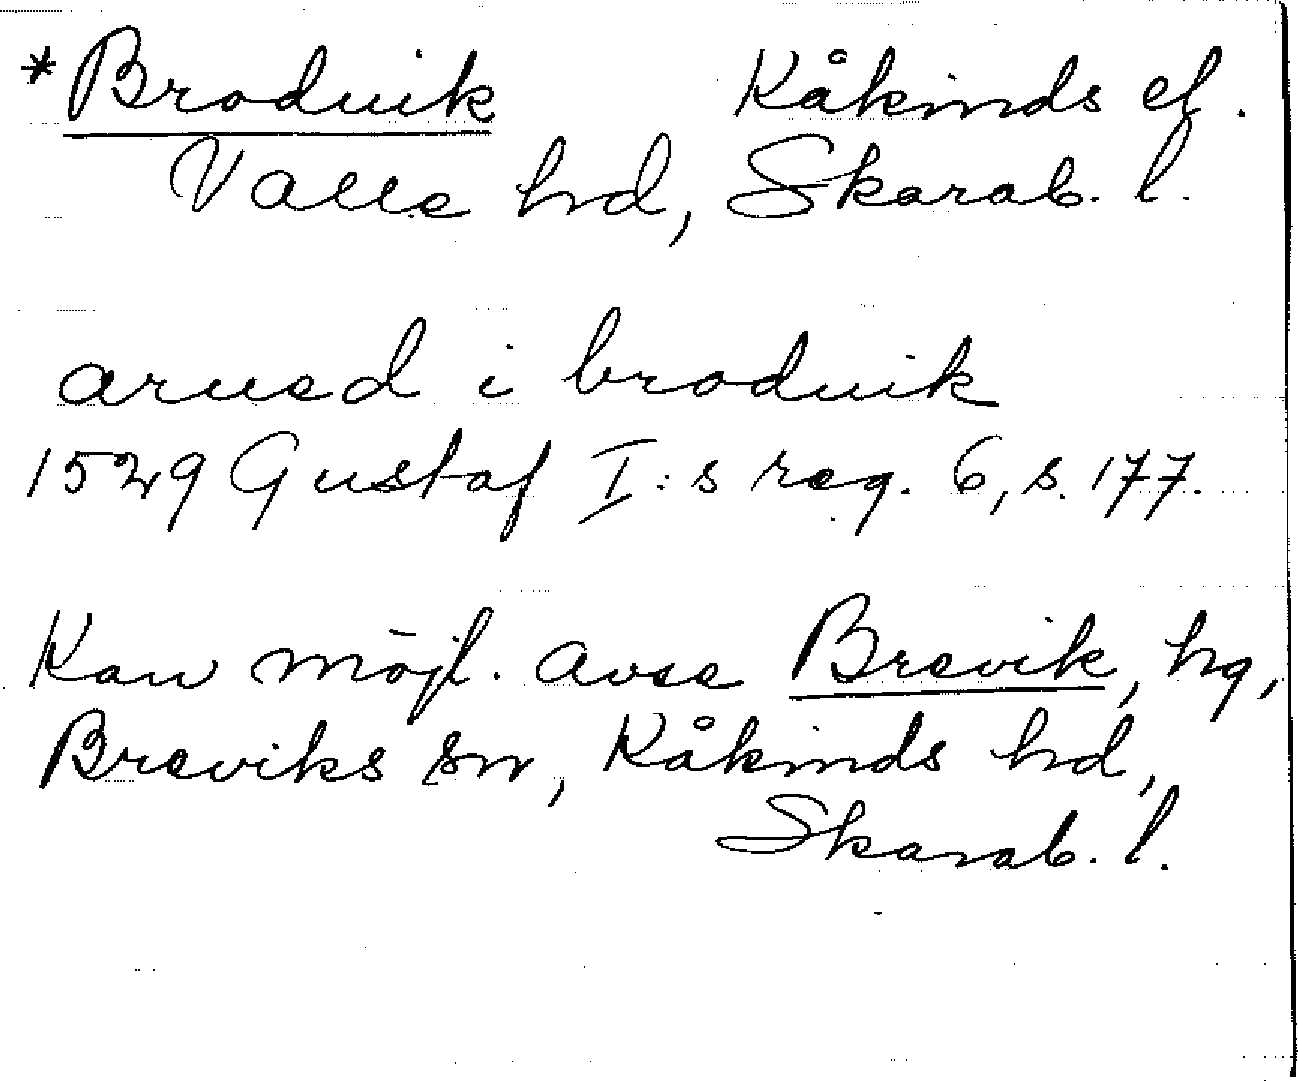 *Broduik Kåkinds el.
Valle hd, Skarab. l.
arued i broduik
1529 Gustaf I:s reg. 6, s. 177.
Kan möjl. avse Brevik, hg,
Breviks sn, Kåkinds hd,
Skarab. l.